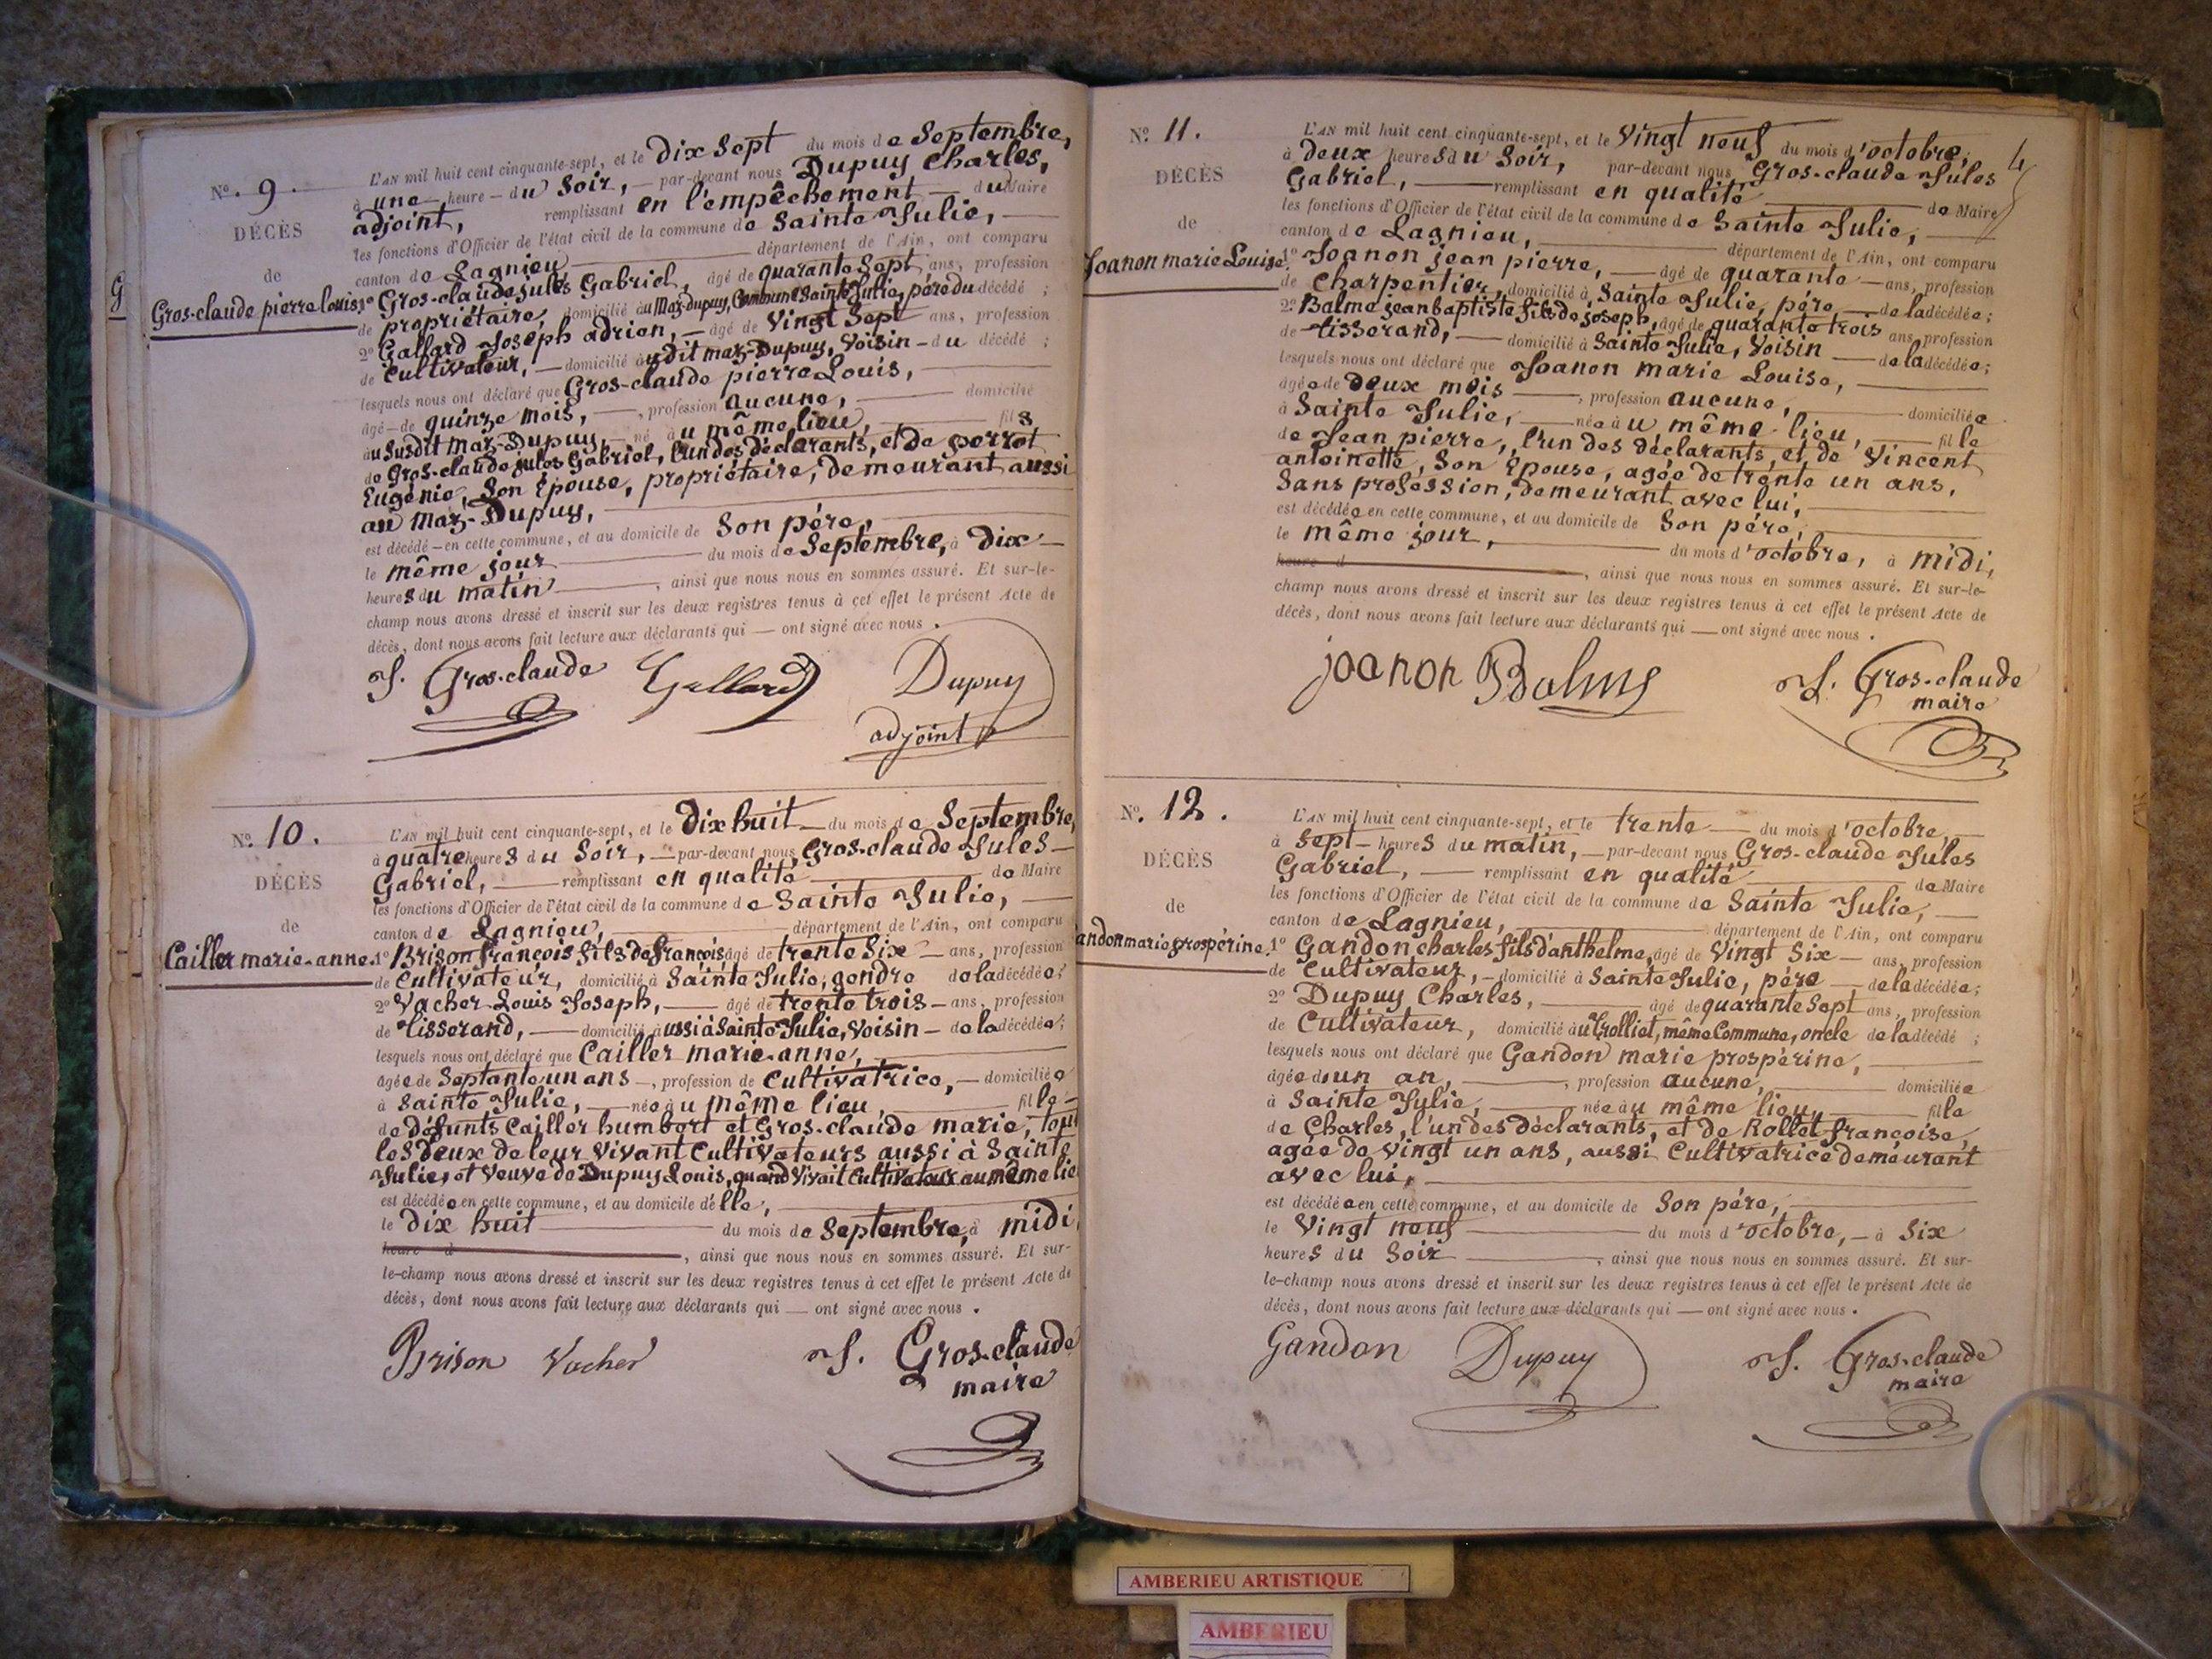 G
Nº. 9.
DÉCÈS
de
Gros-claude pierre louis.
L'AN mil huit cent cinquante-sept, et le Dix Sept du mois de Septembre,
à une heure du Soir, par-devant nous Dupuy Charles,
adjoint, remplissant en l'empêchement du Maire
les fonctions d'Officier de l'état civil de la commune de Sainte Julie,
canton de Lagnieu, département de l'Ain, ont comparu
1º Gros-claude Jules Gabriel, âgé de quarante Sept ans, profession
de propriétaire, domicilié au Maz-Dupuy, Commune Sainte Julie, père du décédé ;
2º Gallard Joseph adrien, âgé de Vingt Sept ans, profession
de Cultivateur, domicilié audit maz-Dupuy, Voisin du décédé ;
lesquels nous ont déclaré que Gros-claude pierre Louis,
âgé de quinze mois, , profession aucune, domicilié
au Susdit Maz-Dupuy, né au même lieu, fils
de Gros-claude jules Gabriel, l'un des déclarants, et de perrot
Eugénie, Son Épouse, propriétaire, demeurant aussi
au Maz-Dupuy,
est décédé en cette commune, et au domicile de Son père,
le même jour du mois de Septembre, à Dix
heures du matin , ainsi que nous nous en sommes assuré. Et sur-le-
champ nous avons dressé et inscrit sur les deux registres tenus à cet effet le présent Acte de
décès, dont nous avons fait lecture aux déclarants qui — ont signé avec nous .
J. Gros-claude Gallard Dupuy
adjoint
Nº. 10.
DÉCÈS
de
Cailler marie-anne.
L'AN mil huit cent cinquante-sept, et le Dix huit du mois de Septembre,
à quatre heures du Soir, par-devant nous Gros-claude Jules
Gabriel, remplissant en qualité de Maire
les fonctions d'Officier de l'état civil de la commune de Sainte Julie,
canton de Lagnieu, département de l'Ain, ont comparu
1º Brison françois fils de françois âgé de trente Six ans, profession
de Cultivateur, domicilié à Sainte Julie, gendre de la décédée ;
2º Vacher Louis Joseph, âgé de trente trois ans, profession
de Tisserand, domicilié aussi à Sainte Julie, Voisin de la décédée ;
lesquels nous ont déclaré que Cailler marie-anne,
âgée de Septante un ans , profession de Cultivatrice, domiciliée
à Sainte Julie, née au même lieu, fille
de défunts Cailler humbert et Gros-claude marie, tous
les deux de leur Vivant Cultivateurs aussi à Sainte
Julie, et Veuve de Dupuy Louis, quand Vivait Cultivateur au même lie
est décédée en cette commune, et au domicile d'elle,
le Dix huit du mois de Septembre, à midi,
heure d , ainsi que nous nous en sommes assuré. Et sur-
le-champ nous avons dressé et inscrit sur les deux registres tenus à cet effet le présent Acte de
décès, dont nous avons fait lecture aux déclarants qui — ont signé avec nous .
Brison Vacher J. Gros-claude
maire
Nº. 11.
DÉCÈS
de
Joanon marie Louise.
L'AN mil huit cent cinquante-sept, et le Vingt neuf du mois d'octobre,
à deux heures du Soir, par-devant nous Gros-claude Jules
Gabriel, remplissant en qualité de Maire
les fonctions d'Officier de l'état civil de la commune de Sainte Julie,
canton de Lagnieu, département de l'Ain, ont comparu
1º Joanon jean pierre, âgé de quarante ans, profession
de Charpentier, domicilié à Sainte Julie, père de la décédée ;
2º Balme jean baptiste fils de joseph, âgé de quarante trois ans, profession
de Tisserand, domicilié à Sainte Julie, Voisin de la décédée ;
lesquels nous ont déclaré que Joanon marie Louise,
âgée de deux mois , profession aucune, domiciliée
à Sainte Julie, née au même lieu, fille
de Jean pierre, l'un des déclarants, et de Vincent
antoinette, Son Épouse, agée de trente un ans,
Sans profession, demeurant avec lui,
est décédée en cette commune, et au domicile de Son père,
le même jour, du mois d'octobre, à midi,
heure d , ainsi que nous nous en sommes assuré. Et sur-le-
champ nous avons dressé et inscrit sur les deux registres tenus à cet effet le présent Acte de
décès, dont nous avons fait lecture aux déclarants qui — ont signé avec nous .
joanon Balme J. Gros-claude
maire
Nº. 12.
DÉCÈS
de
andon marie prospérine.
L'AN mil huit cent cinquante-sept, et le trente du mois d'octobre,
à Sept heures du matin, par-devant nous Gros-claude Jules
Gabriel, remplissant en qualité de Maire
les fonctions d'Officier de l'état civil de la commune de Sainte Julie,
canton de Lagnieu, département de l'Ain, ont comparu
1º Gandon charles fils d'anthelme, âgé de Vingt Six ans, profession
de Cultivateur, domicilié à Sainte Julie, père de la décédée ;
2º Dupuy Charles, âgé de quarante Sept ans, profession
de Cultivateur, domicilié au Trolliet, même Commune, oncle de la décédé ;
lesquels nous ont déclaré que Gandon marie prospérine,
âgée d'un an, , profession aucune, domiciliée
à Sainte Julie, née au même lieu, fille
de Charles, l'un des Déclarants, et de Rollet françoise,
agée de Vingt un ans, aussi Cultivatrice demeurant
avec lui,
est décédée en cette commune, et au domicile de Son père,
le Vingt neuf du mois d'octobre, à Six
heures du Soir , ainsi que nous nous en sommes assuré. Et sur-
le-champ nous avons dressé et inscrit sur les deux registres tenus à cet effet le présent Acte de
décès, dont nous avons fait lecture aux déclarants qui — ont signé avec nous .
Gandon Dupuy J. Gros-claude
maire
AMBERIEU ARTISTIQUE
AMBERIEU